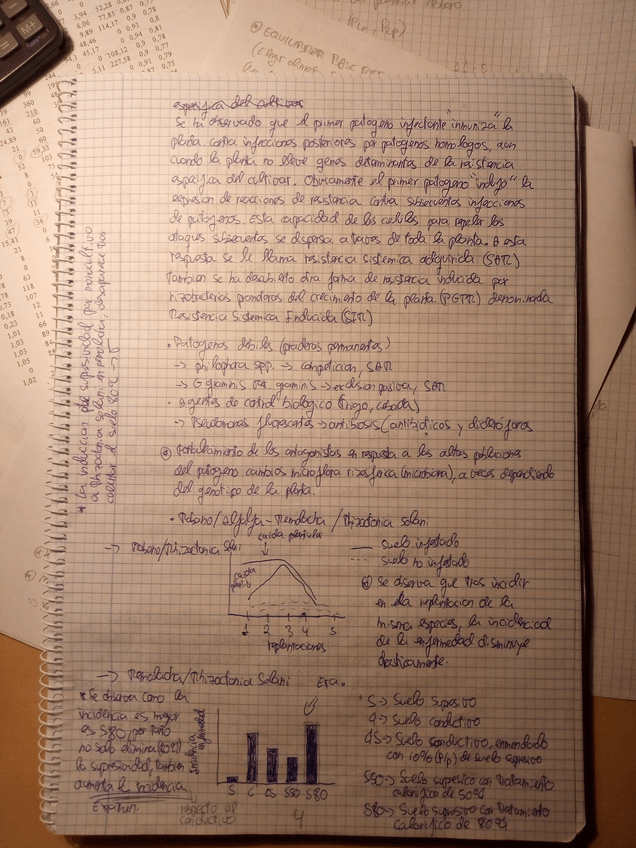 específica del cultivar
Se ha observado que el primer patogeno infectante "inmuniza" la
planta contra infecciones posteriores por patogenos homologos, aun
cuando la planta no lleve genes determinantes de la resistencia
especifica del cultivar. Obviamente el primer patogeno "indujo" la
expresion de reacciones de resistancia contra subsecuentes infecciones
de patogenos. Esta capacidad de las celulas para repeler los
ataques subsecuentes se dispersa a traves de toda la planta. A esta
respuesta se le llama resistencia sistemica adquirida (SAR)
Tambien se ha descubierto otra forma de resistencia inducida por
rizobacterias promotoras del crecimiento de la planta (PGPR) denominada
Resistencia Sistemica Inducida (SIR)
• Patogenos debiles (praderas permanentes)
-> phialophora spp. -> competicion, SAR
-> G graminis var. graminis -> exclusion pasiva, SAR
• Agentes de control biologico (trigo, cebada)
-> Pseudomonas fluorescens -> antibiosis (antibioticos y sideroforos
Fortalecimiento de los antagonistas en respuesta a las altas poblaciones
del patogeno cambios microflora rizosferica (microbiana), a veces dependiendo
del genotipo de la planta.
• Rabano/alfalfa - Remolacha / Rhizoctonia solani.
-> Rabano/Rhizoctonia Solani
caida plantula
caida
suelo infestado
suelo no infestado
Se observa que tras incidir
en la replantacion de la
misma especies, la incidencia
de la enfermedad disminuye
drasticamente.
1 2 3 4 5
replantaciones
-> Remolacha/Rhizoctonia Solani
* Se observa como la
incidencia es mayor
es S80, por tanto
no solo elimina (80ºC)
la supresividad, tambien
aumenta la incidencia
Examen.
respecto al
conductivo
Incidencia
enfermedad
S C CS S50 S80
S -> Suelo supresivo
C -> Suelo conductivo
CS -> Suelo conductivo, enmendado
con 10% (p/p) de suelo supresivo
S50 -> Suelo supresivo con tratamiento
calorifico de 50ºC
S80 -> Suelo supresivo con tratamiento
calorifico de 80ºC
4
* La induccion de supresividad por monocultivo
a Rhizoctonia solani en remolacha, desaparece tras
calentar el suelo 80ºC